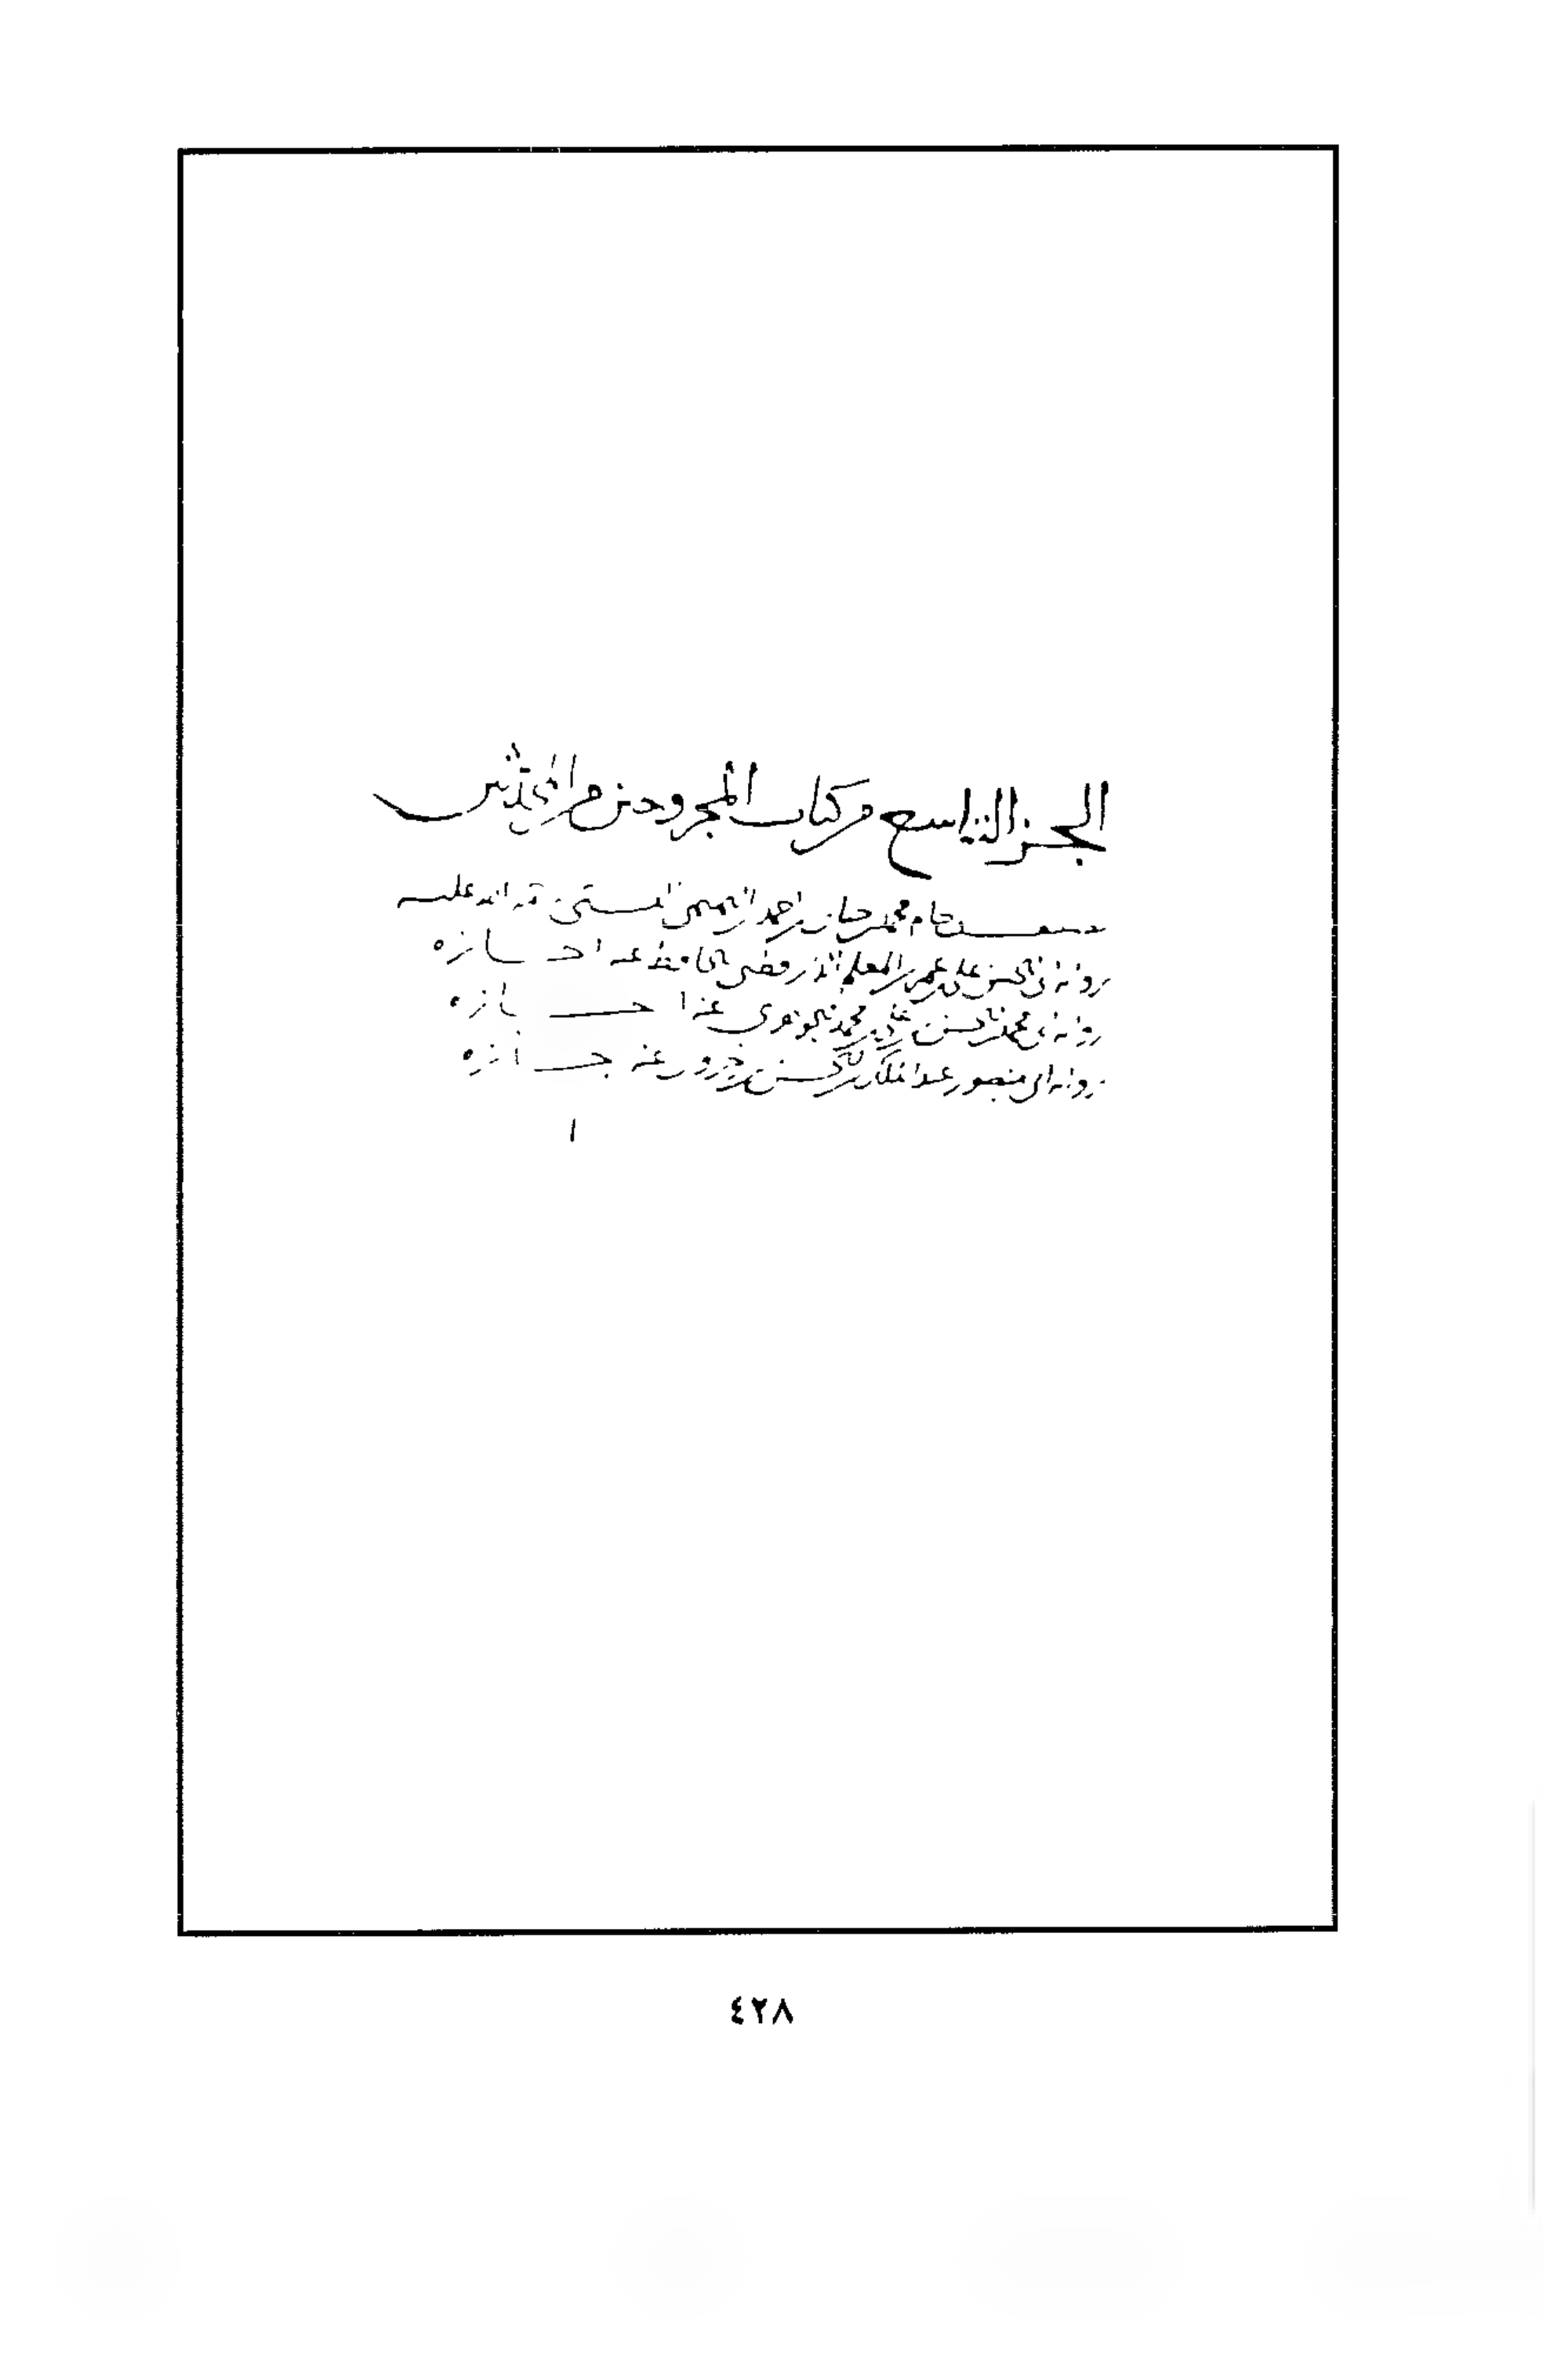 الجز التاسع من كتاب المجروحين من المحدثين
تصنيف أبي حاتم محمد بن حبان بن احمد التميمي البستي رحمة الله عليه
رواية ابي الحسن علي بن عمر الدارقطني الحافظ عنه اجازة
رواية ابي محمد الحسن بن علي بن محمد الجوهري عنه اجازة
رواية ابي منصور عبد الملك بن الحسن بن خيرون عنه اجازة
٤٢٨